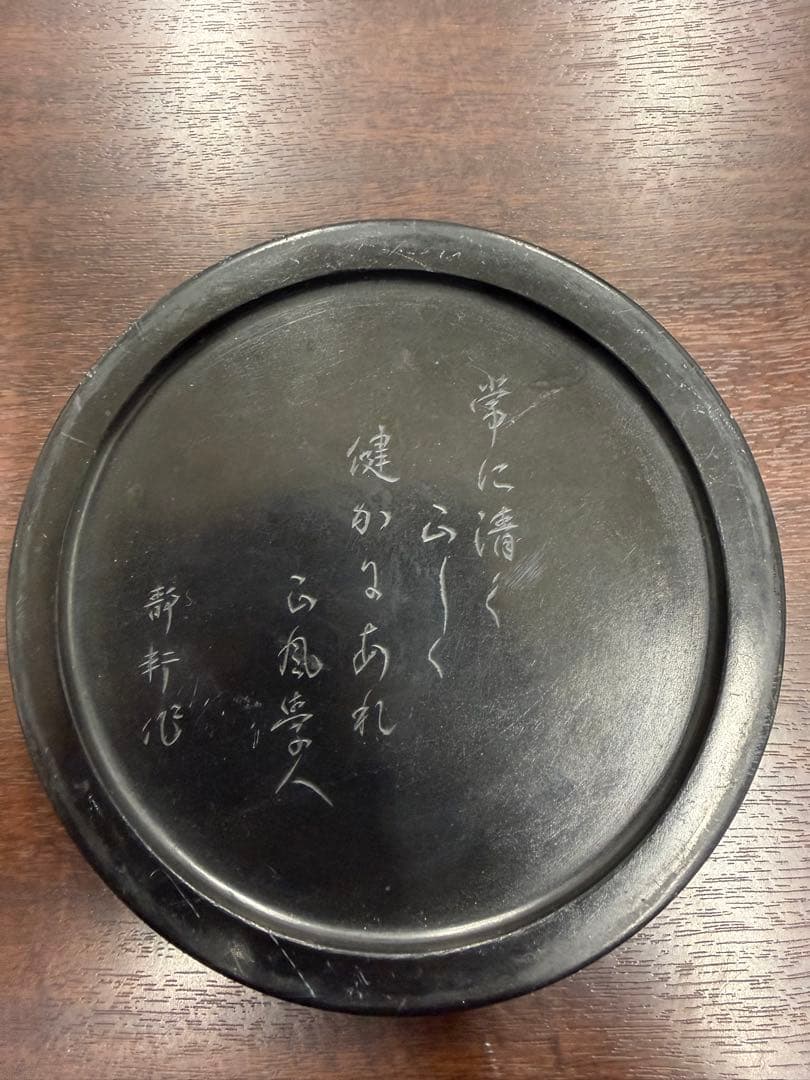 常に清く
正しく
健かにあれ
正風学人
静軒作